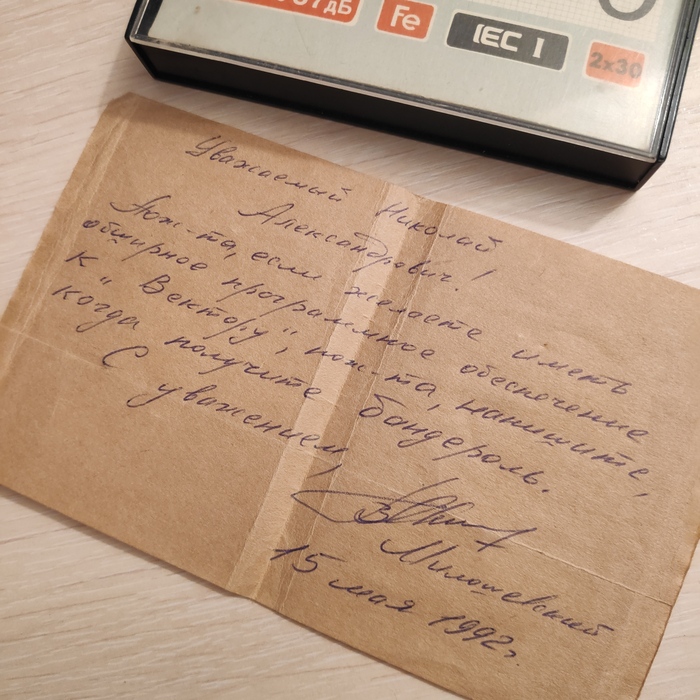 дБ
Fe
IEC I
2x30
Уважаемый Николай
Александрович!
Пож-та, если желаете иметь
обширное программное обеспечение
к "Вектору", пож-та, напишите,
когда получите бандероль.
С уважением,
Милошевский
15 мая 1992г.